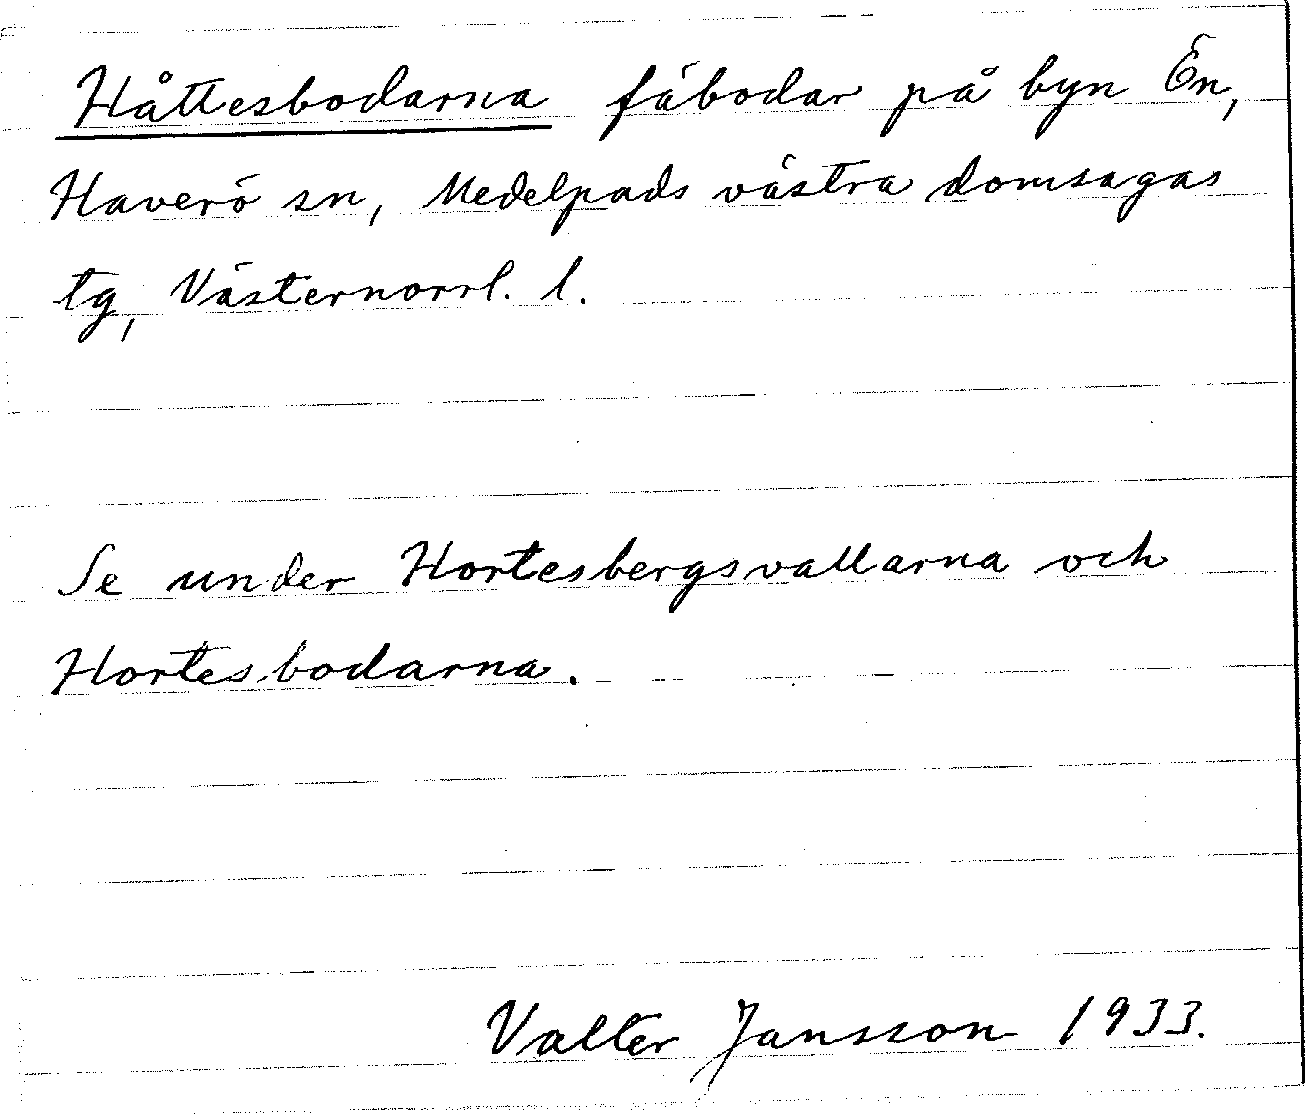 Håttesbodarna fäbodar på byn Ön,
Haverö sn, Medelpads västra domsagas
tg, Västernorrl. l.
Se under Hortesbergsvallarna och
Hortesbodarna.
Valter Jansson 1933.